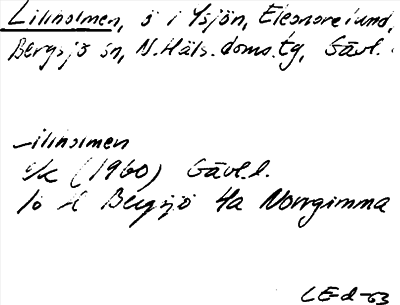 Lillholmen, ö i Ysjön, Eleonorelund,
Bergsjö sn, N. Häls. doms.tg, Gävl.
Lillholmen
e/k (1960) Gävl.l.
Bergsjö 4a Norrgimma